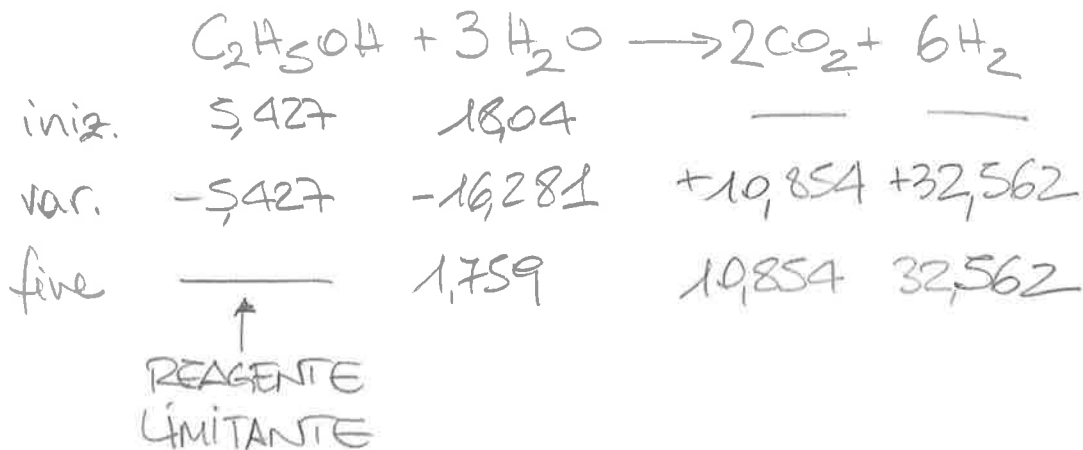 C₂H₅OH + 3H₂O ⟶ 2CO₂ + 6H₂
iniz. 5,427 18,04 — —
var. -5,427 -16,281 +10,854 +32,562
fine — 1,759 10,854 32,562
REAGENTE
LIMITANTE